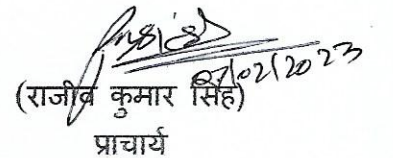 07/02/2023
(राजीव कुमार सिंह)
प्राचार्य